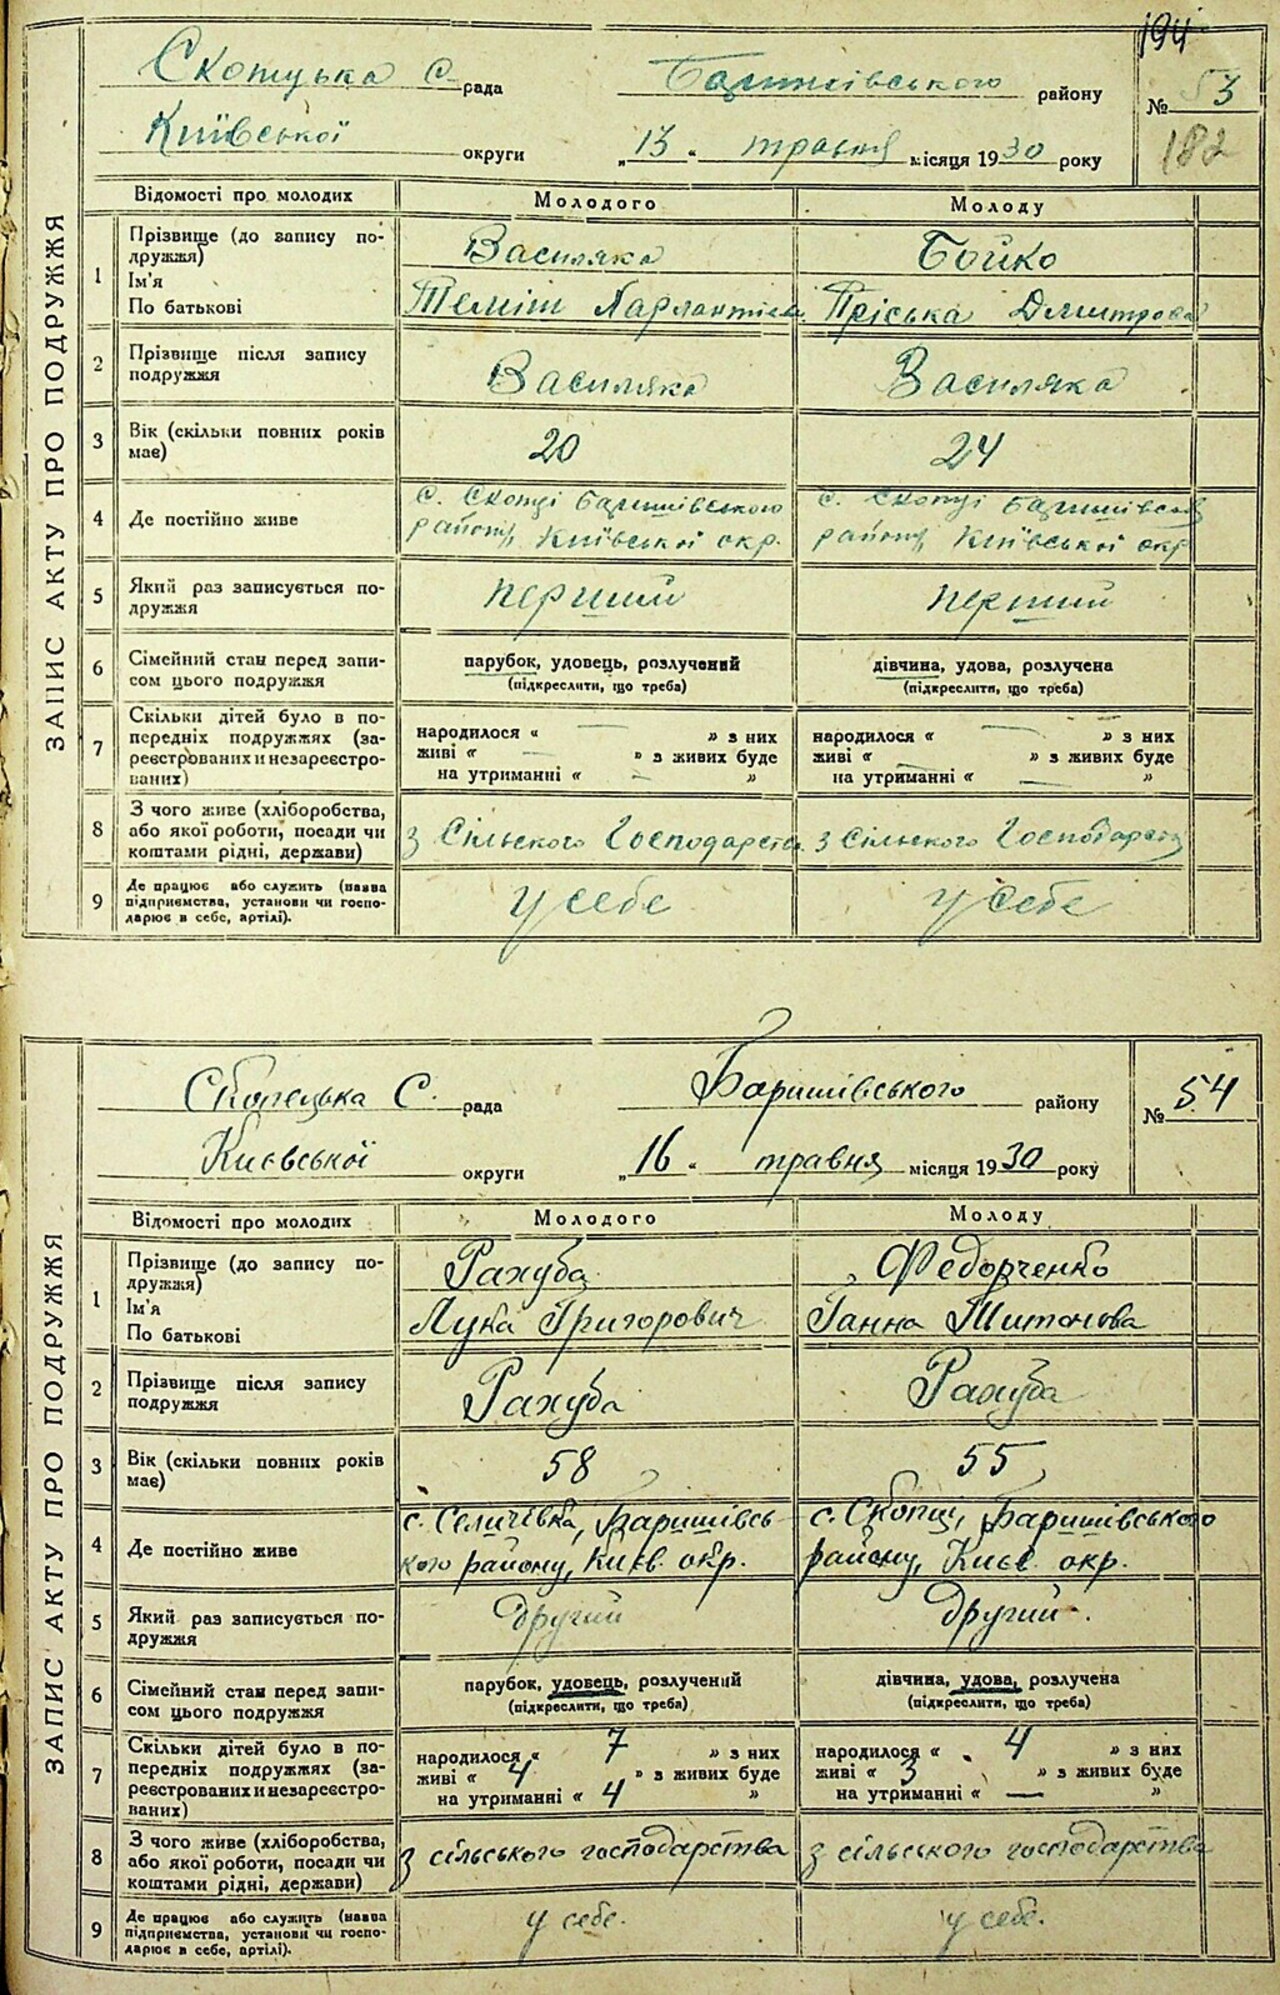 194
Скопцька С. рада Баришівського району № 53
Київської округи „13“ травня місяця 1930 року 182
ЗАПИС АКТУ ПРО ПОДРУЖЖЯ
Відомості про молодих Молодого Молоду
1 Прізвище (до запису по-дружжя) Василяка Бойко
Ім'я
По батькові Пріська Дмитрова
2 Прізвище після запису подружжя Василяка Василяка
3 Вік (скільки повних років має) 20 24
4 Де постійно живе с. Скопці Баришівського с. Скопці Баришівськ
району, Київської окр. району, Київської окр
5 Який раз записується по-дружжя перший перший
6 Сімейний стан перед запи-сом цього подружжя парубок, удовець, розлучений дівчина, удова, розлучена
(підкреслити, що треба) (підкреслити, що треба)
7 Скільки дітей було в по-передніх подружжях (за-реєстрованих и незареєстро-ваних) народилося « — » з них народилося « — » з них
живі « — » з живих буде живі « — » з живих буде
на утриманні « — » на утриманні « — »
8 З чого живе (хліборобства, або якої роботи, посади чи коштами рідні, держави) з Сільского Господарства з Сільского Господарств
9 Де працює або служить (назва підприємства, установи чи госпо-дарює в себе, артілі). у себе у себе
Скопецька С. рада Баришівського району № 54
Києвської округи „16“ травня місяця 1930 року
ЗАПИС АКТУ ПРО ПОДРУЖЖЯ
Відомості про молодих Молодого Молоду
1 Прізвище (до запису по-дружжя) Рахуба Федорченко
Ім'я
По батькові Лука Григорович Ганна Титонова
2 Прізвище після запису подружжя Рахуба Рахуба
3 Вік (скільки повних років має) 58 55
4 Де постійно живе с. Селичівка, Баришівсь- с. Скопці, Баришівського
кого району, Київ. окр. району, Києв. окр.
5 Який раз записується по-дружжя другий другий.
6 Сімейний стан перед запи-сом цього подружжя парубок, удовець, розлучений дівчина, удова, розлучена
(підкреслити, що треба) (підкреслити, що треба)
7 Скільки дітей було в по-передніх подружжях (за-реєстрованих и незареєстро-ваних) народилося « 7 » з них народилося « 4 » з них
живі « 4 » з живих буде живі « 3 » з живих буде
на утриманні « 4 » на утриманні « — »
8 З чого живе (хліборобства, або якої роботи, посади чи коштами рідні, держави) з сільського господарства з сільського господарства
9 Де працює або служить (назва підприємства, установи чи госпо-дарює в себе, артілі). у себе. у себе.